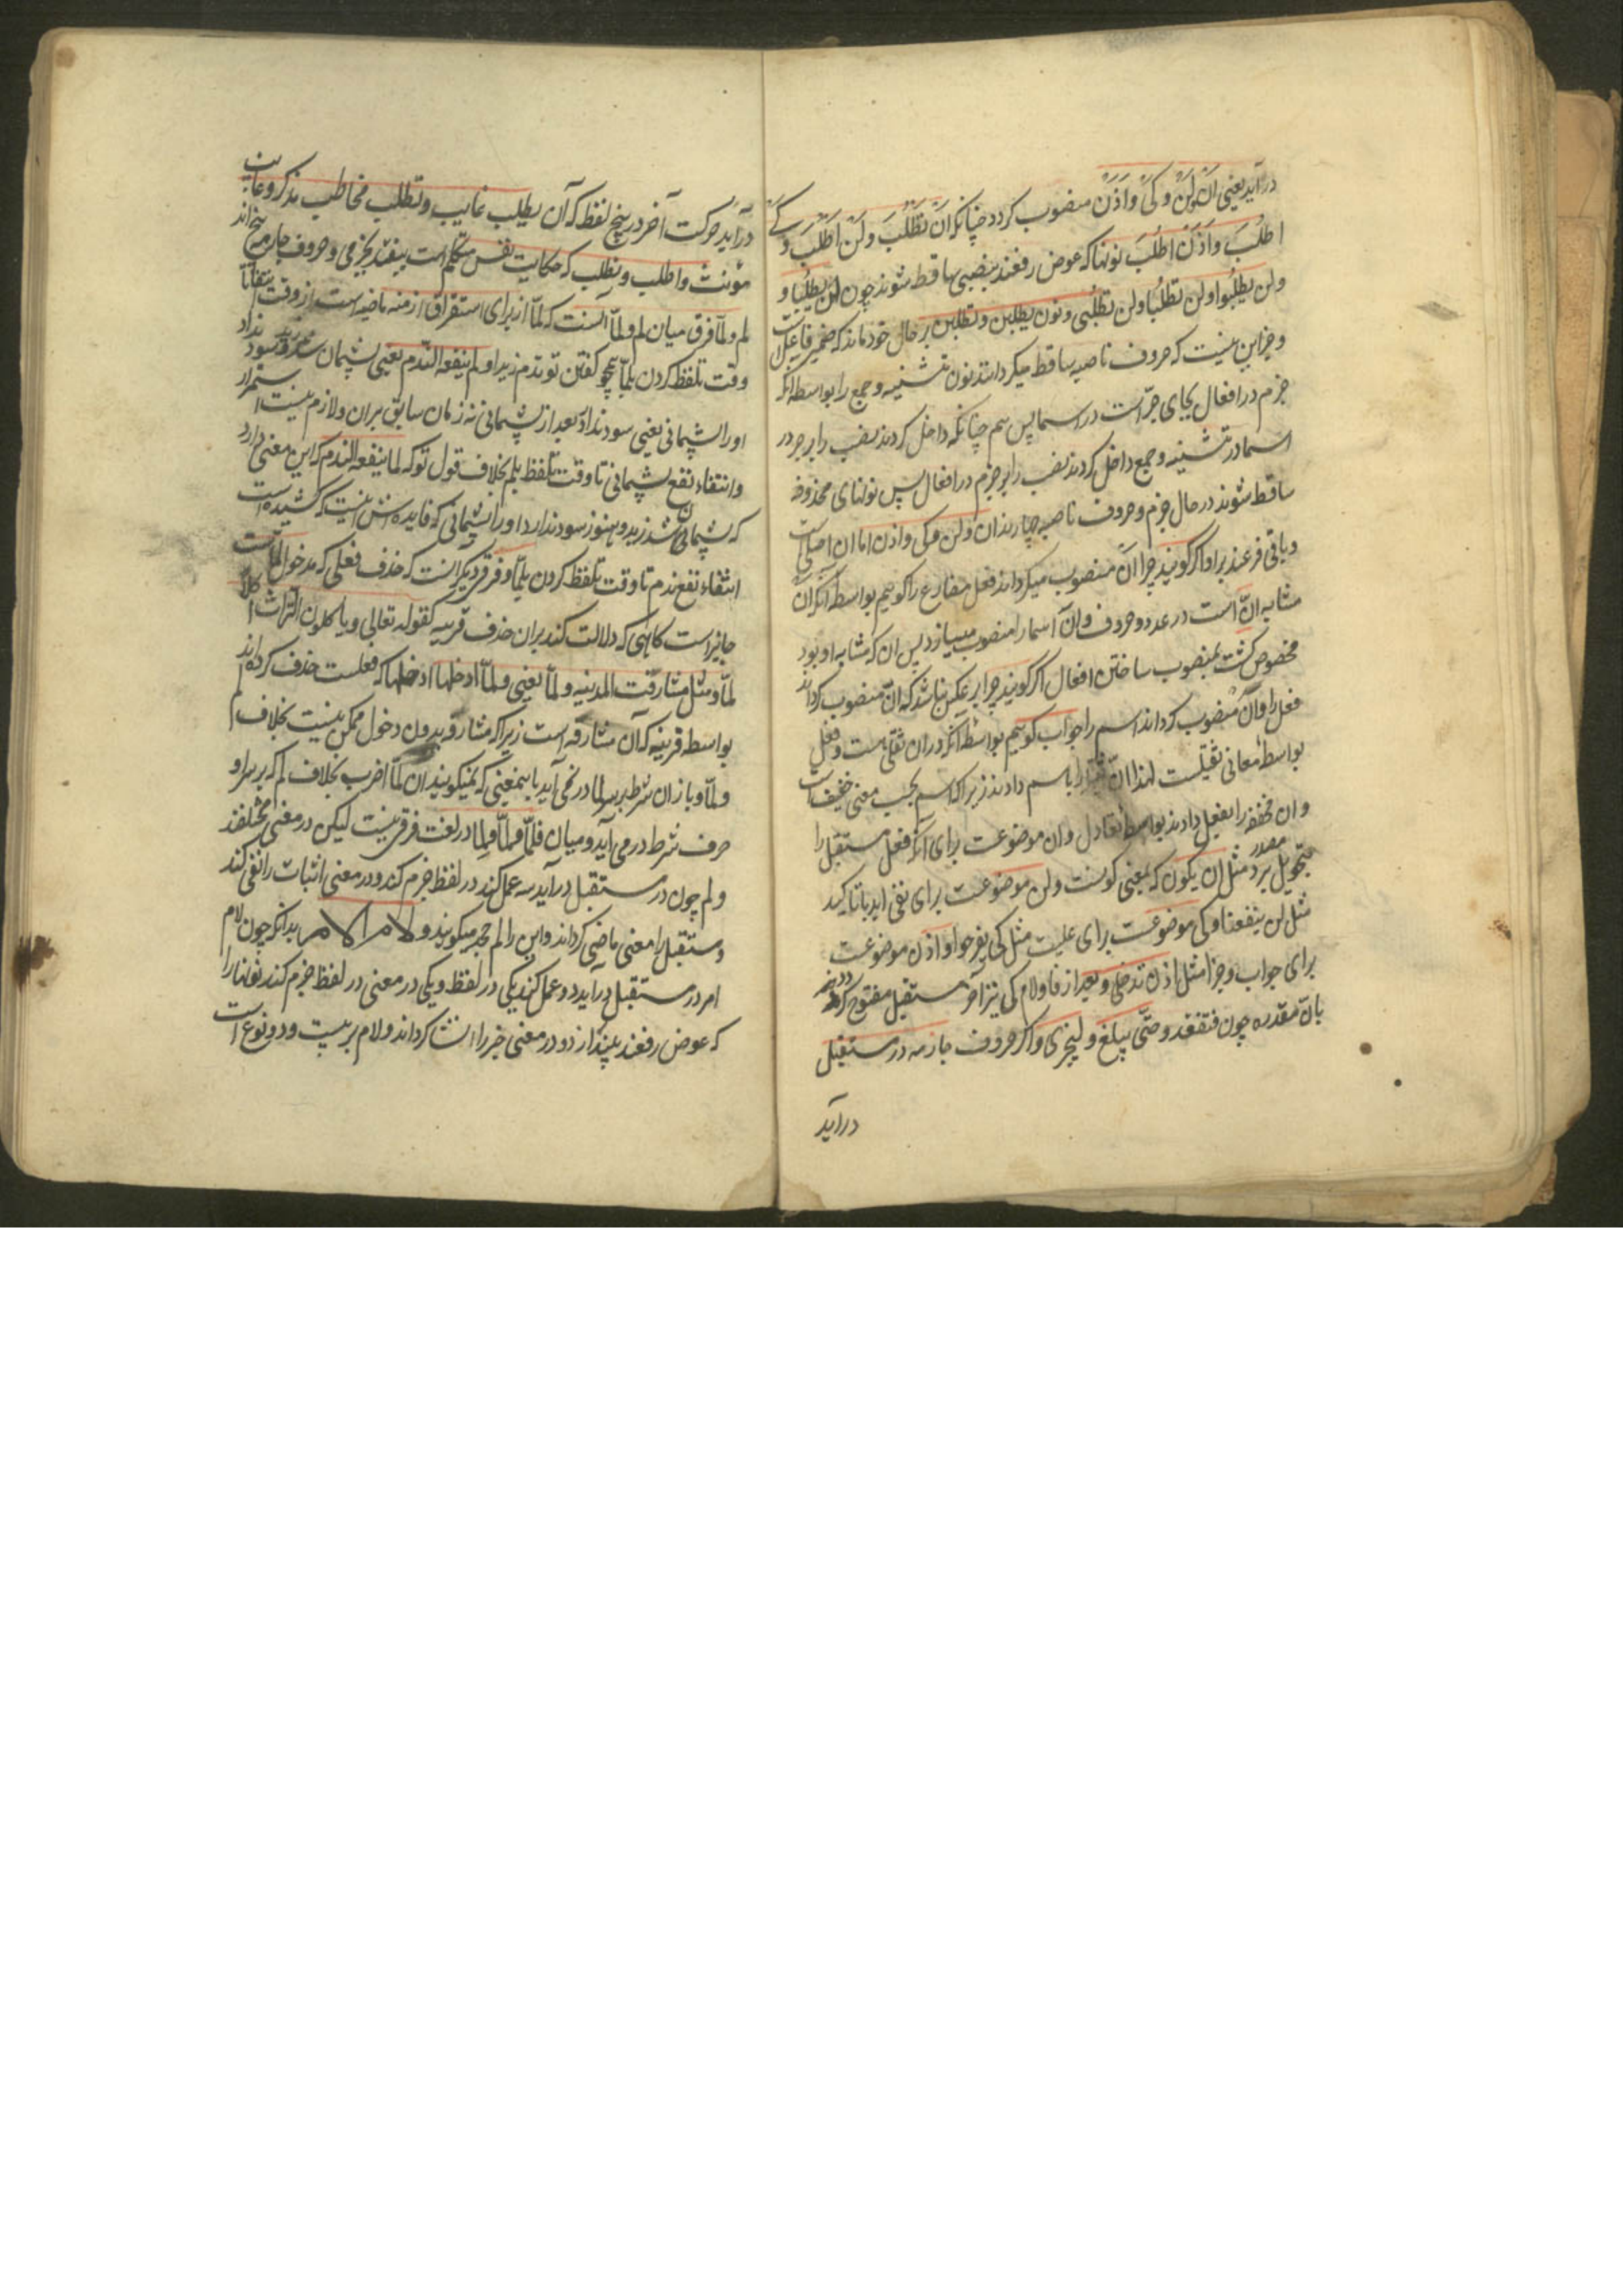 درآید یعنی اَنْ و لَنْ و کَیْ و اِذَنْ منصوب کردد چنانکه اَنْ تَطْلُبَ و لَنْ اَطْلُبَ و کے
اطلُبَ و اذَنْ اطلُبَ نونها که عوض رفعند بنصبی ساقط شوند چون لن یطلُبا و
ولن یطلُبوا ولن تطلُبا ولن تطلُبی و نون یطلبن و تطلبن بر حال خود ماند که ضمیر فاعل است
و جز این نیست که حروف ناصبه ساقط میکردانند نون تثنیه و جمع را بواسطه آنکه
جزم در افعال بجای جرّ است در اسما پس هم چنانکه داخل کردند نصب را بر جر در
اسما در تثنیه و جمع داخل کردند نصب را بر جزم در افعال پس نونهای محذوفه
ساقط شوند در حال جزم و حروف ناصبه چارند ان و لن و کی و اذن اما ان اصلی است
و باقی فرعند برا و اکر کویند چرا اَن منصوب میکرداند فعل مضارع را کوییم بواسطه آنکه ان
مشابه انّ است در عدد حروف و انّ اسما را منصوب میسازد پس ان که مشابه او بود
مخصوص کشت بمنصوب ساختن افعال اکر کویند چرا بر عکس نباشد که انّ منصوب کرداند
فعل را و اَنْ منصوب کرداند اسم را جواب کوییم بواسطه آنکه در ان ثقلی هست و فعل
بواسطه معانی ثقیلست لهذا انّ را باسم دادند زیرا که اسم بحسب معنی خفیف است
و ان مخففه را بفعل دادند بواسطه تعادل و ان موضوعست برای آنکه فعل مستقبل را
بتحویل مصدر برد مثل ان یکون که بمعنی کونست و لن موضوعست برای نفی ابد با تاکید
مثل لن ینفعنا و کی موضوعست برای علیت مثل کی یفرحوا و اذن موضوعست
برای جواب و جزا مثل اذن تدخل و بعد از فا و لام کی نیز آخر مستقبل مفتوح کردد
بانّ مقدره چون فتقعد و حتّی یبلغ و لیجزی و اکر حروف جازمه در مستقبل
درآید
درآید حرکت آخر در پنج لفظ که آن یطلب غایب و تطلب مخاطب مذکر و غایب
مؤنث و اطلب و نطلب که حکایت نفس متکلم است بیفتد بجزمی و حروف جازمه پنج اند
لم و لمّا فرق میان لم و لمّا آنست که لمّا از برای استغراق ازمنه ماضیه است از وقت انتفا تا
وقت تلفظ کردن بلمّا همچو کفتن تو ندم زید و لم ینفعه الندم یعنی پشیمان شد زید و سود نداد
او را پشیمانی یعنی سود نداد بعد از پشیمانی نه زمان سابق بر ان و لازم نیست استمرار
و انتفاء نفع پشیمانی تا وقت تلفظ بلم بخلاف قول تو که لما ینفعه الندم که این معنی دارد
که پشیمان شد زید و هنوز سود ندارد او را پشیمانی که فایده اش اینست که کشیده است
انتفاء نفع ندم تا وقت تلفظ کردن بلمّا و فرق دیکر انست که حذف فعلی که مدخول لمّا است
جایز است کاهی که دلالت کند بران حذف قرینه کقوله تعالی و یاکلون التراث اکلا
لمّا و مثل شارفت المدینه و لمّا یعنی و لمّا ادخلها ادخلها که فعلست حذف کرده اند
بواسطه قرینه که آن مشارفه است زیرا که مشارفه بدون دخول ممکن نیست بخلاف لم
و لمّا و باز ان شرط بر سر لما در نمی آید باینمعنی که نمیکویند ان لمّا اضرب بخلاف لم که بر سر او
حرف شرط در می آید و میان فلمّا و لمّا و لما در لغت فرقی نیست لیکن در معنی مختلفند
و لم چون در مستقبل درآید سه عمل کند در لفظ جزم کند و در معنی اثبات را نفی کند
و مستقبل را معنی ماضی کرداند و این را لم جحد میکویند و لام الامر بدانکه چون لام
امر در مستقبل درآید دو عمل کند یکی در لفظ و یکی در معنی در لفظ جزم کند نونها را
که عوض رفعند بیندازد و در معنی خبر را انشا کرداند و لام بر بیست و دو نوع است